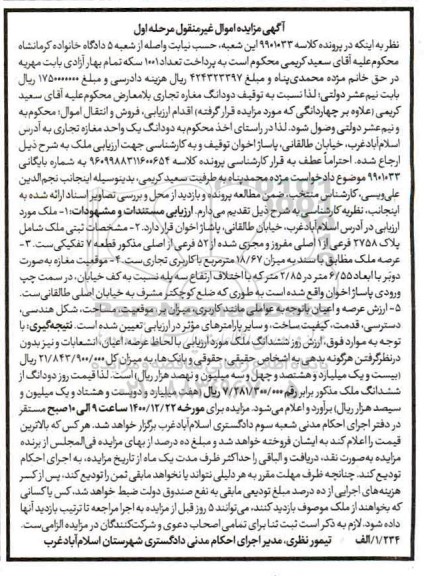 آگهی مزایده اموال غیرمنقول مرحله اول
نظر به اینکه در پرونده کلاسه ۹۹۰۱۰۳۳ این شعبه، حسب نیابت واصله از شعبه ۵ دادگاه خانواده کرمانشاه
محکوم‌علیه آقای سعید کریمی محکوم است به پرداخت تعداد ۱۰۰ سکه تمام بهار آزادی بابت مهریه
در حق خانم مژده محمدی‌پناه و مبلغ ۴۲۴۳۲۳۳۹۷ ریال هزینه دادرسی و مبلغ ۱۷۵۰۰۰۰۰۰۰ ریال
بابت نیم‌عشر دولتی؛ لذا نسبت به توقیف دودانگ مغازه تجاری بلامعارض محکوم‌علیه آقای سعید
کریمی (علاوه بر چهاردانگی که مورد مزایده قرار گرفته) اقدام ارزیابی، فروش و انتقال اموال؛ محکوم به
و نیم‌عشر دولتی وصول شود. لذا در راستای اخذ محکوم‌به دودانگ یک واحد مغازه تجاری به آدرس
اسلام‌آبادغرب، خیابان طالقانی، پاساژ اخوان توقیف و به کارشناسی جهت ارزیابی ملک به شرح ذیل
ارجاع شده. احتراماً عطف به قرار کارشناسی پرونده کلاسه ۹۶۰۹۹۸۸۳۱۱۶۰۰۶۵۴ به شماره بایگانی
۹۹۰۱۰۳۳ موضوع دادخواست مژده محمدپناه به طرفیت سعید کریمی، بدینوسیله اینجانب نجم‌الدین
علی‌ویسی، کارشناس منتخب ضمن مطالعه پرونده و بازدید از محل و بررسی تصاویر اسناد ارائه شده به
اینجانب، نظریه کارشناسی به شرح ذیل تقدیم می‌دارم. ارزیابی مستندات و مشهودات: ۱- ملک مورد
ارزیابی در آدرس اسلام‌آبادغرب، خیابان طالقانی، پاساژ اخوان قرار دارد. ۲- مشخصات ثبتی ملک شامل
پلاک ۲۷۵۸ فرعی از ۱ اصلی مفروز و مجزی شده از ۵۲ فرعی از اصلی مذکور قطعه ۷ تفکیکی‌ست. ۳-
عرصه ملک مطابق با سند به میزان ۱۸/۶۷ مترمربع با کاربری تجاری‌ست. ۴- موقعیت مغازه به صورت
دوبَر با ابعاد ۶/۵۵ متر در ۲/۸۵ متر که با اختلاف ارتفاع سه پله نسبت به کف خیابان، در سمت چپ
ورودی پاساژ اخوان واقع شده است به طوری که ضلع کوچکتر مشرف به خیابان اصلی طالقانی‌ست.
۵- ارزش عرصه و اعیان باتوجه به عواملی مانند کاربری، میزان بر، موقعیت، مساحت، شکل هندسی،
دسترسی، قدمت، کیفیت ساخت، و سایر پارامترهای مؤثر در ارزیابی تعیین شده است. نتیجه‌گیری: با
توجه به موارد فوق، ارزش روز ششدانگ ملک مورد ارزیابی با لحاظ عرصه، اعیان، انشعابات و نیز بدون
درنظرگرفتن هرگونه بدهی به اشخاص حقیقی، حقوقی و بانک‌ها، به میزان کل ۲۱/۸۴۳/۹۰۰/۰۰۰ ریال
(بیست و یک میلیارد و هشتصد و چهل و سه میلیون و نهصد هزار ریال) است. لذا قیمت روز دودانگ از
ششدانگ ملک مذکور برابر رقم ۷/۲۸۱/۳۰۰/۰۰۰ ریال (هفت میلیارد و دویست و هشتاد و یک میلیون و
سیصد هزار ریال) برآورد و اعلام می‌شود. مزایده برای مورخه ۱۴۰۰/۱۲/۲۲ ساعت ۹ الی ۱۰ صبح مستقر
در دفتر اجرای احکام مدنی شعبه سوم دادگستری اسلام‌آبادغرب برگزار خواهد شد. هر کس که بالاترین
قیمت را اعلام کند به ایشان فروخته خواهد شد و مبلغ ده درصد از بهای مزایده فی‌المجلس از برنده
مزایده به‌صورت نقد، دریافت و الباقی را حداکثر ظرف مدت یک ماه از تاریخ مزایده، به اجرای احکام
تودیع کند. چنانچه ظرف مهلت مقرر به هر دلیلی نتواند یا نخواهد مابقی ثمن را تودیع کند، پس از کسر
هزینه‌های اجرایی از ده درصد مبلغ تودیعی مابقی به نفع صندوق دولت ضبط خواهد شد. کس یا کسانی
که بخواهند از ملک موصوف بازدید کنند، می‌توانند ۵ روز قبل از مزایده به اجرا مراجعه تا ترتیب بازدید آنها
داده شود. لازم به ذکر است ثبت ثنا برای تمامی اصحاب دعوی و شرکت‌کنندگان در مزایده الزامی‌ست.
۱/۲۳۴/الف تیمور نظری، مدیر اجرای احکام مدنی دادگستری شهرستان اسلام‌آبادغرب